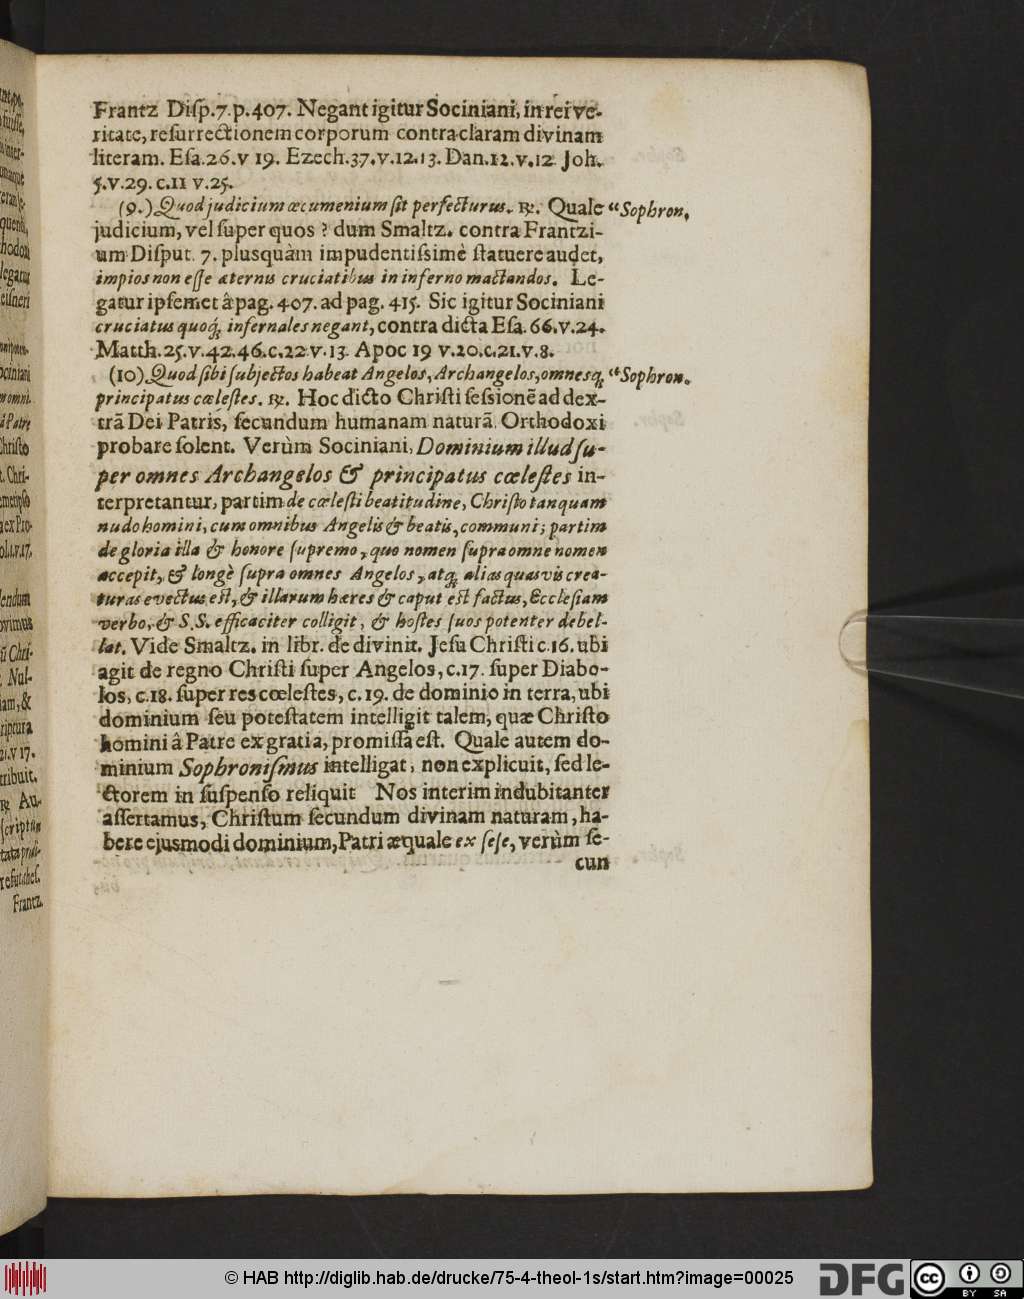 Frantz Diſp.7.p.407. Negant igitur Sociniani, in rei ve-
ritate, reſurrectionem corporum contra claram divinam
literam. Eſa.26.v 19. Ezech.37.v.12.13. Dan.12.v.12. Joh.
5.v.29. c.11 v.25.
(9.) Quod judicium œcumenium ſit perfecturus. ℞. Quale “Sophron.
judicium, vel ſuper quos ? dum Smaltz. contra Frantzi-
um Diſput. 7. plusquàm impudentiſſimè ſtatuere audet,
impios non eſſe æternis cruciatibus in inferno mactandos. Le-
gatur ipſemet â pag. 407. ad pag. 415. Sic igitur Sociniani
cruciatus quoq; infernales negant, contra dicta Eſa. 66.v.24.
Matth.25.v.42.46.c.22.v.13. Apoc 19 v.20.c.21.v.8.
(10) Quod ſibi ſubjectos habeat Angelos, Archangelos, omnesq; “Sophron.
principatus cæleſtes. ℞. Hoc dicto Chriſti ſeſsionẽ ad dex-
trã Dei Patris, ſecundum humanam naturã, Orthodoxi
probare ſolent. Verùm Sociniani, Dominium illud ſu-
per omnes Archangelos & principatus cœleſtes in-
terpretantur, partim de cœleſti beatitudine, Chriſto tanquam
nudo homini, cum omnibus Angelis & beatis, communi; partim
de gloria illa & honore ſupremo, quo nomen ſupra omne nomen
accepit, & longè ſupra omnes Angelos, atq; alias quasvis crea-
turas evectus eſt, & illarum hæres & caput eſt factus, Eccleſiam
verbo, & S.S. efficaciter colligit, & hoſtes ſuos potenter debel-
lat. Vide Smaltz. in libr. de divinit. Jeſu Chriſti c.16. ubi
agit de regno Chriſti ſuper Angelos, c.17. ſuper Diabo-
los, c.18. ſuper res cœleſtes, c.19. de dominio in terra, ubi
dominium ſeu poteſtatem intelligit talem, quæ Chriſto
homini â Patre ex gratia, promiſſa eſt. Quale autem do-
minium Sophroniſmus intelligat, non explicuit, ſed le-
ctorem in ſuſpenſo reliquit Nos interim indubitanter
aſſertamus, Chriſtum ſecundum divinam naturam, ha-
bere ejusmodi dominium, Patri æquale ex ſeſe, verùm ſe-
cun
Frantz.
© HAB http://diglib.hab.de/drucke/75-4-theol-1s/start.htm?image=00025
DFG
cc BY SA